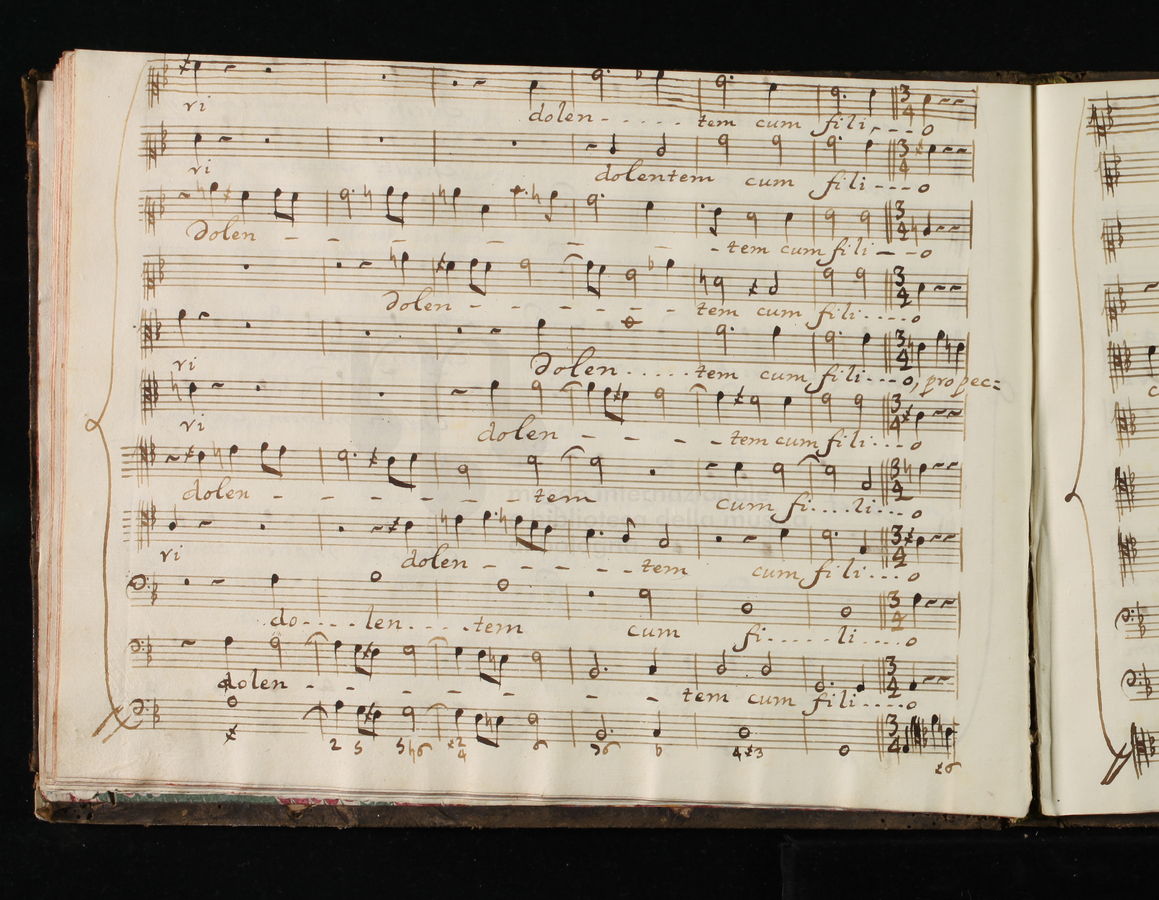 ri dolen - - - - - tem cum fili - - - o
ri dolentem cum fili - - - o
Dolen - - - - - - - tem cum fili - - o
dolen - - - - - tem cum fili - - - - o
ri Dolen - - - - - tem cum fili - - - o, pro pec=
ri dolen - - - - tem cum fili - - - o
dolen - - - - - tem cum fi - - - - li - - - o
ri dolen - - - - - tem cum fili - - - o
do - - - - len - - - - - tem cum fi - - - - - li - - - - o
dolen - - - - - - - tem cum fili - - - - o
2 5 5 ♮6 ♯2 6 ♭ 4 ♯3
4
♯6
museo internazionale
e biblioteca della musica